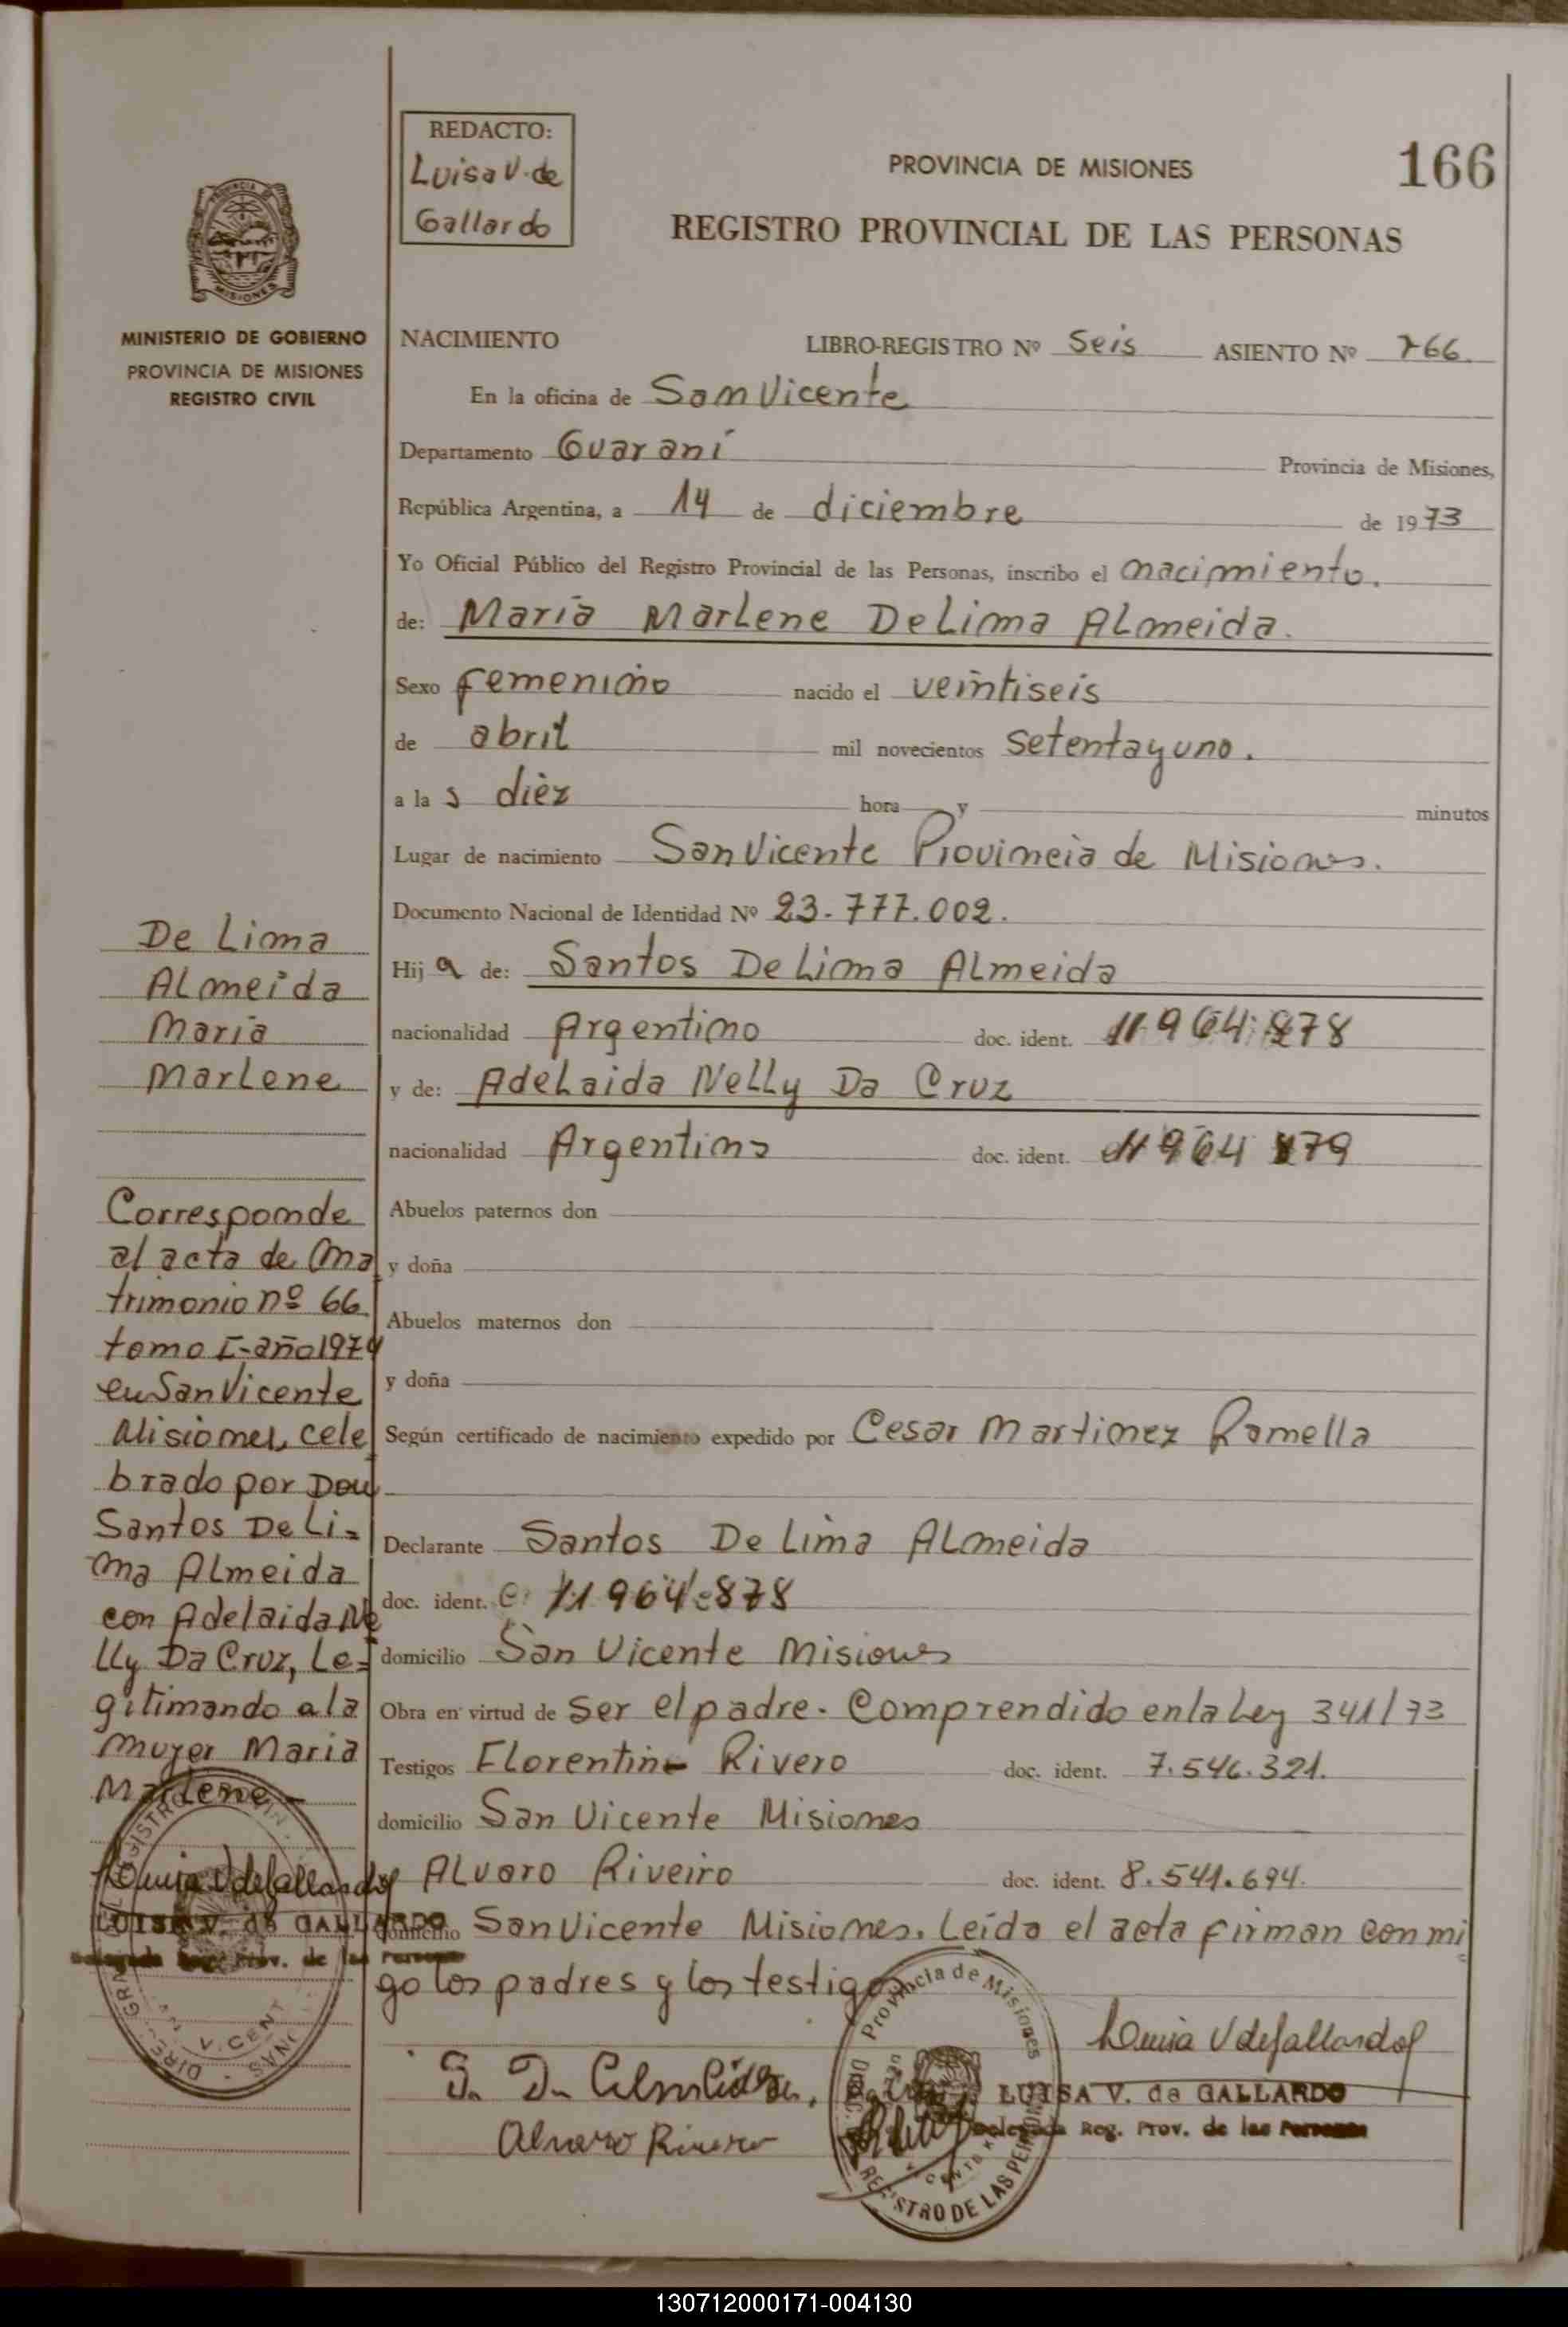 REDACTO:
Luisa V. de
Gallardo
PROVINCIA DE MISIONES
166
REGISTRO PROVINCIAL DE LAS PERSONAS
MISIONES
MINISTERIO DE GOBIERNO
PROVINCIA DE MISIONES
REGISTRO CIVIL
NACIMIENTO LIBRO-REGISTRO Nº Seis ASIENTO Nº 766.
En la oficina de San Vicente
Departamento Guaraní Provincia de Misiones,
República Argentina, a 14 de diciembre de 1973
Yo Oficial Público del Registro Provincial de las Personas, inscribo el nacimiento.
de: María Marlene De Lima Almeida.
Sexo femenino nacido el veintiseis
de abril mil novecientos setenta y uno.
a la s diez hora y minutos
Lugar de nacimiento San Vicente Provincia de Misiones.
Documento Nacional de Identidad Nº 23.777.002.
Hij a de: Santos De Lima Almeida
nacionalidad Argentino doc. ident. 11 964 878
y de: Adelaida Nelly Da Cruz
nacionalidad Argentina doc. ident. 11 964 879
Abuelos paternos don
y doña
Abuelos maternos don
y doña
Según certificado de nacimiento expedido por Cesar Martinez Ramella
Declarante Santos De Lima Almeida
doc. ident. 11 964 878
domicilio San Vicente Misiones
Obra en virtud de ser el padre. Comprendido en la Ley 341/73
Testigos Florentino Rivero doc. ident. 7.546.321.
domicilio San Vicente Misiones
y Alvaro Riveiro doc. ident. 8.541.694.
domicilio San Vicente Misiones. Leída el acta firman conmi
go los padres y los testigos
De Lima
Almeida
María
Marlene
Corresponde
al acta de ma
trimonio nº 66
tomo I-año 1974
en San Vicente
Misiones, cele
brado por Don
Santos De Li=
ma Almeida
con Adelaida Ne
lly Da Cruz, Le=
gitimando a la
mujer Maria
Marlene
Luisa V de Gallardo
LUISA V. de GALLARDO
Delegada Reg. Prov. de las Personas
S. D. Almeida
Alvaro Rivero
Provincia de Misiones
REGISTRO DE LAS PERSONAS
Luisa V de Gallardo
LUISA V. de GALLARDO
Delegada Reg. Prov. de las Personas
130712000171-004130